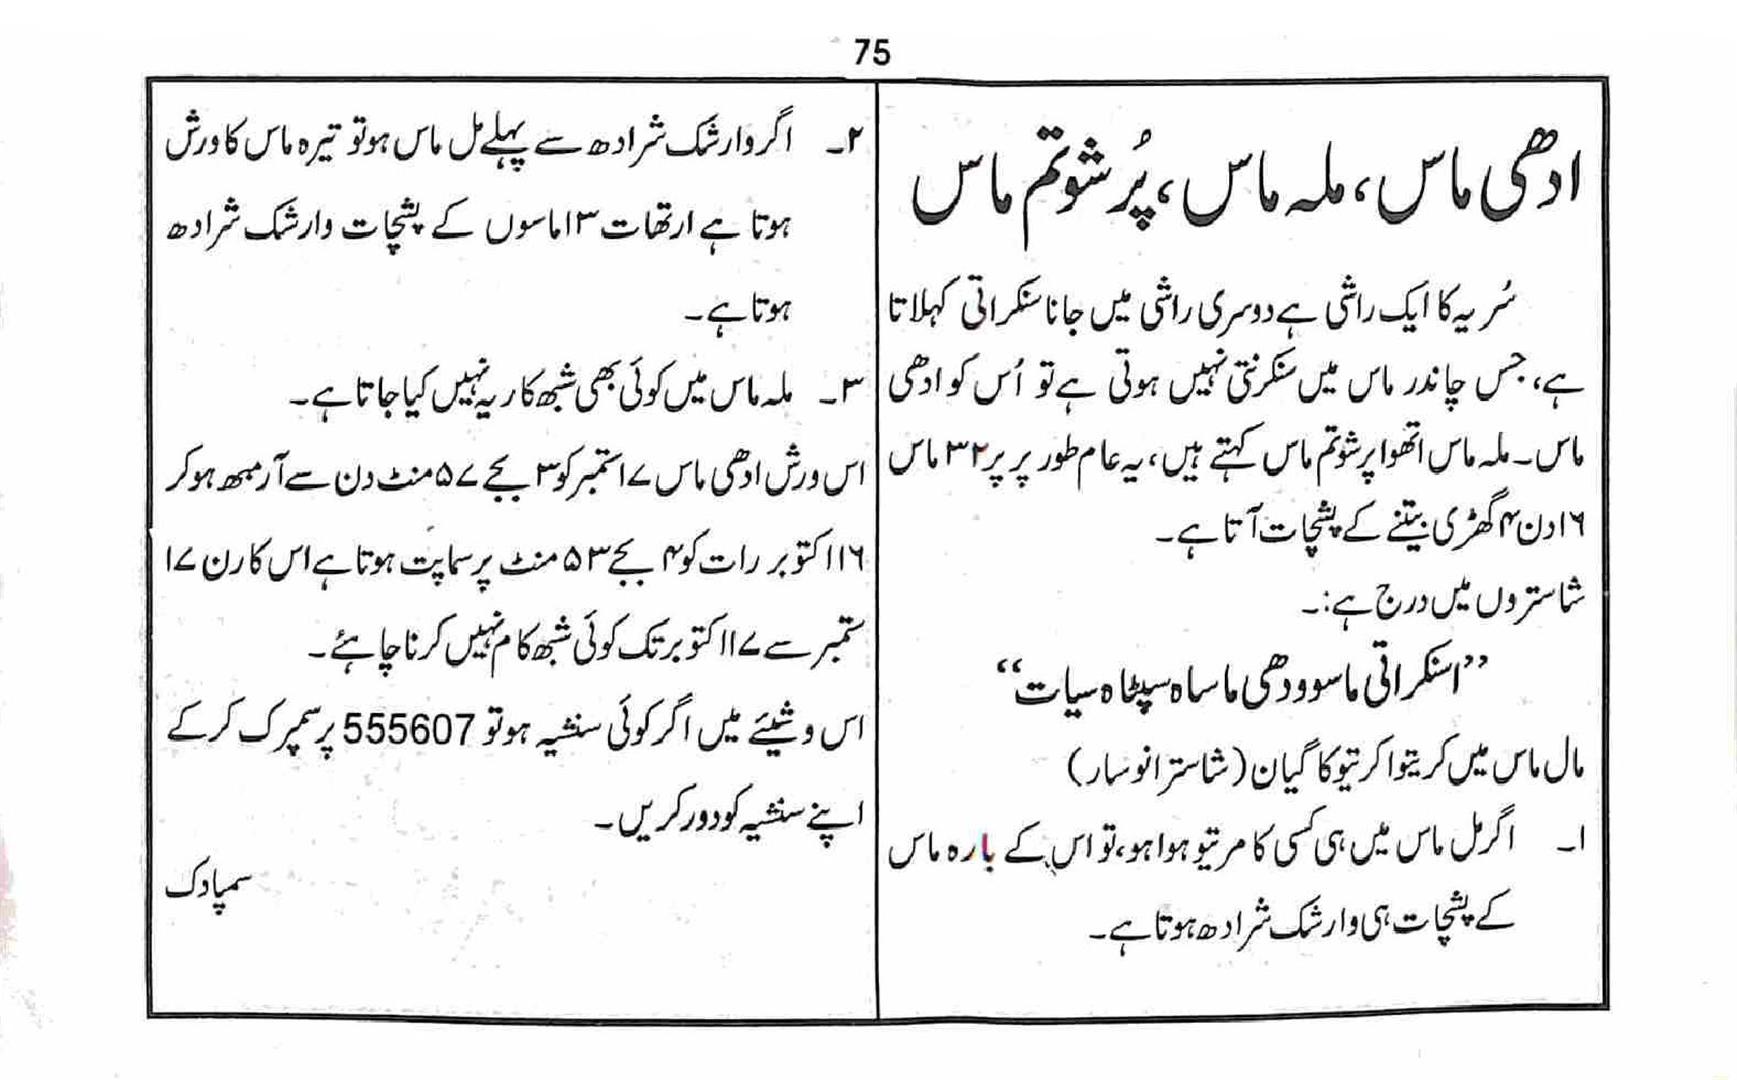 75
ادھی ماس، ملہ ماس، پُرشوتم ماس
سُریہ کا ایک راشی ہے دوسری راشی میں جانا سنکراتی کہلاتا
ہے، جس چاندر ماس میں سنکرنتی نہیں ہوتی ہے تو اُس کو ادھی
ماس۔ ملہ ماس اتھوا پرشوتم ماس کہتے ہیں، یہ عام طور پر پر ۳۲ ماس
۱۶ دن ۴ گھڑی بیتنے کے پشچات آتا ہے۔
شاستروں میں درج ہے:۔
”اسنکراتی ماسوودھی ماساہ سپٹاہ سیات“
مال ماس میں کریتوا کرتیو کا گیان (شاستر انوسار)
۱۔ اگر مل ماس میں ہی کسی کا مرتیو ہوا ہو، تو اس کے بارہ ماس
کے پشچات ہی وارشک شرادھ ہوتا ہے۔
۲۔ اگر وارشک شرادھ سے پہلے مل ماس ہو تو تیرہ ماس کا ورش
ہوتا ہے ارتھات ۱۳ ماسوں کے پشچات وارشک شرادھ
ہوتا ہے۔
۳۔ ملہ ماس میں کوئی بھی شبھ کاریہ نہیں کیا جاتا ہے۔
اس ورش ادھی ماس ۱۷ ستمبر کو ۳ بجے ۵۷ منٹ دن سے آرمبھ ہو کر
۱۶ اکتوبر رات کو ۴ بجے ۵۳ منٹ پر سماپت ہوتا ہے اس کارن ۱۷
ستمبر سے ۱۷ اکتوبر تک کوئی شبھ کام نہیں کرنا چاہئے۔
اس وشیئے میں اگر کوئی سنشیہ ہو تو 555607 پر سمپرک کر کے
اپنے سنشیہ کو دور کریں۔
سمپادک